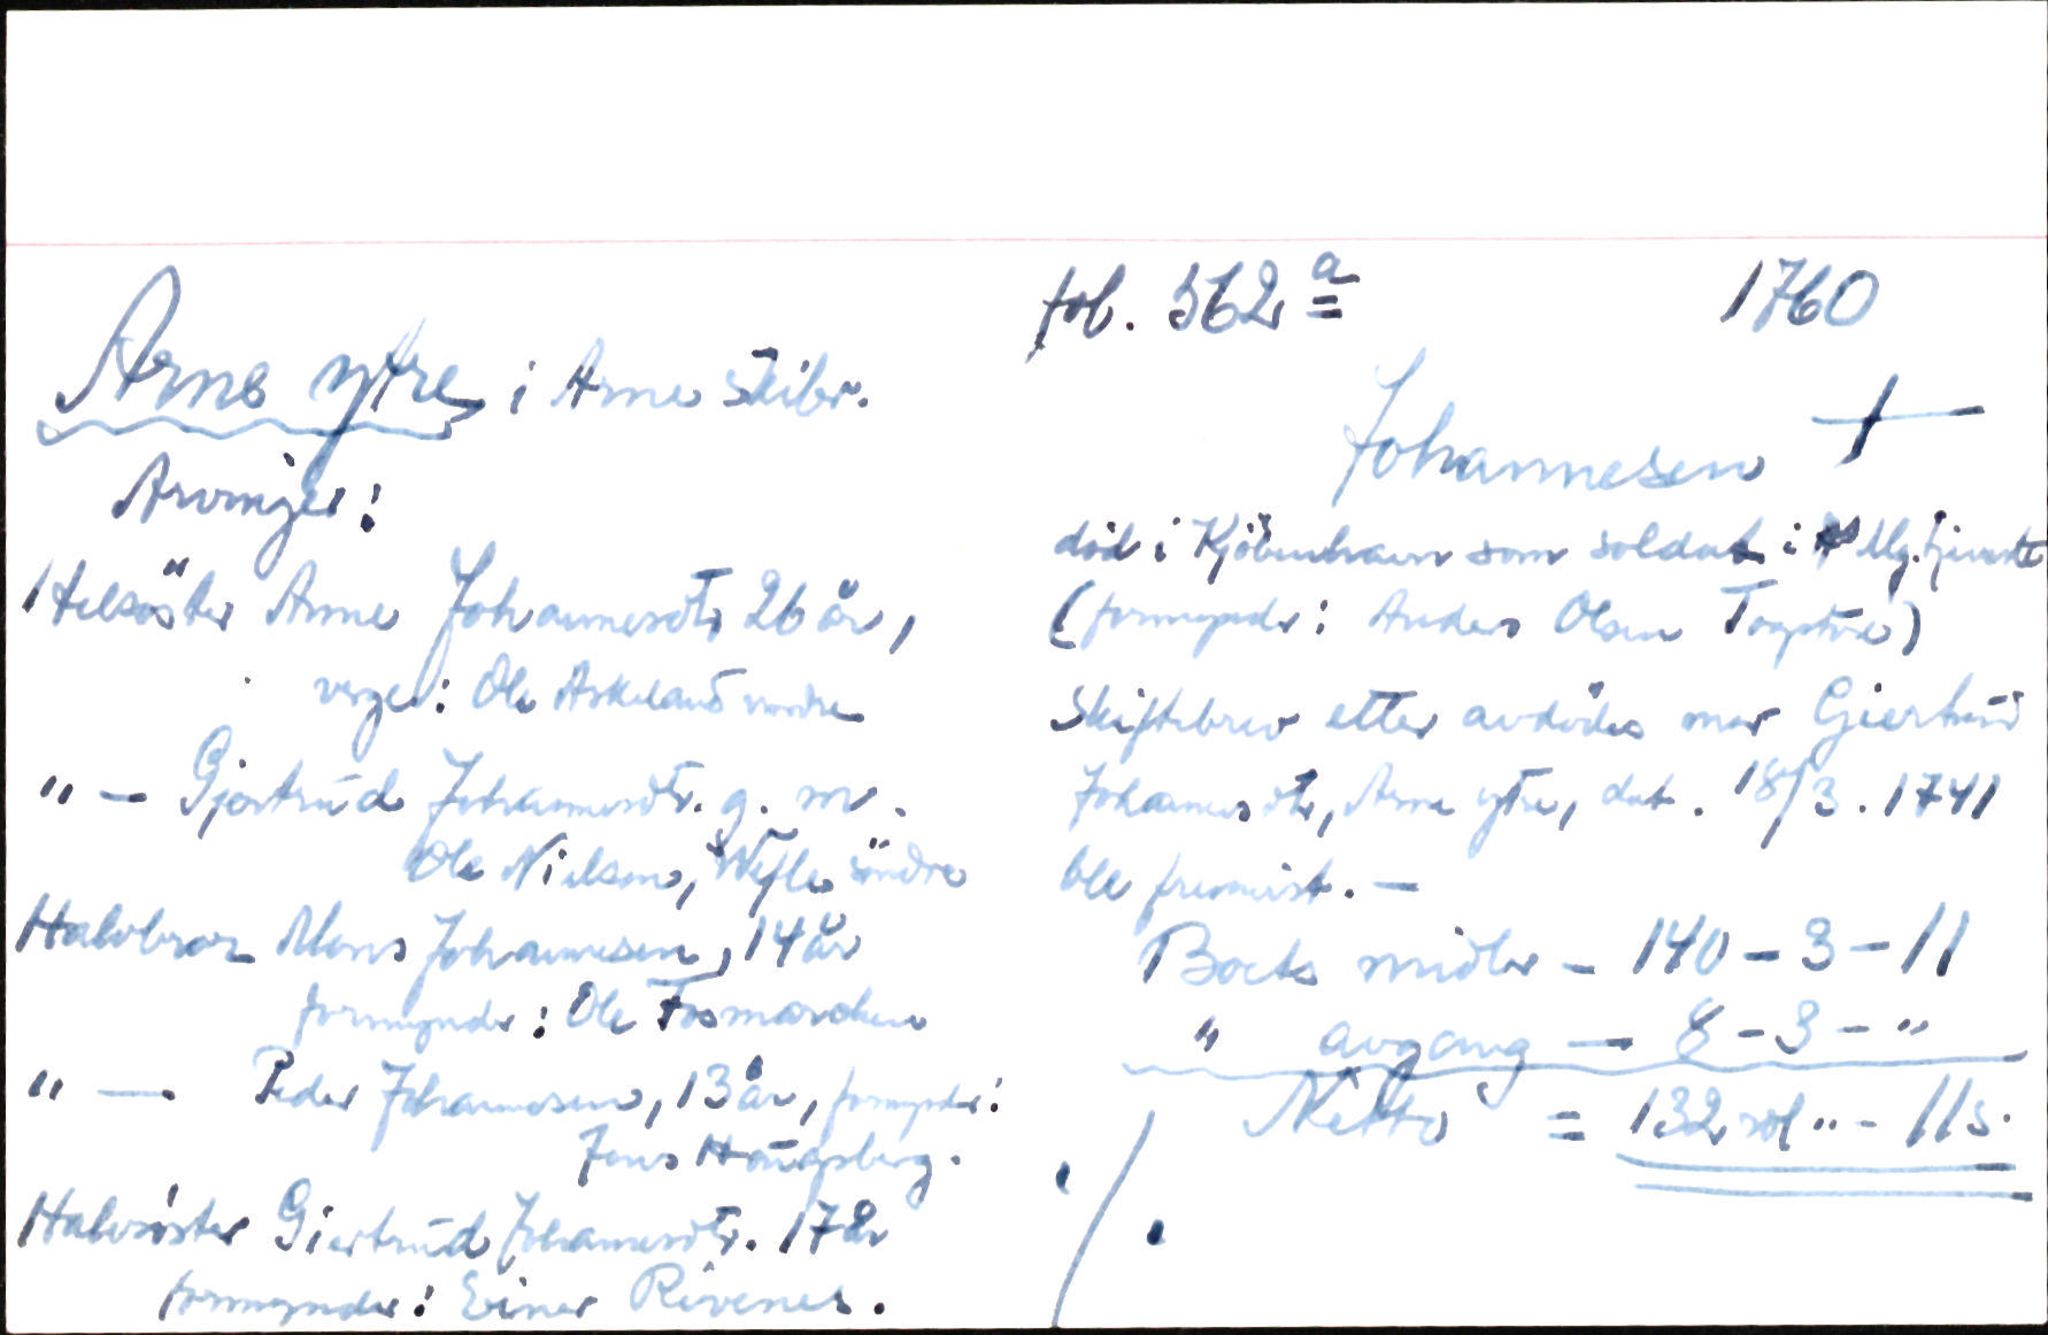 fol. 562 a 1760
Arne ytre i Arne skibr.
Johannesen +
Arvinger:
Helsöster Anne Johannesdtr 26 år,
verge: Ole Askeland nordre
" — Gjertrud Johannesdtr. g. m.
Ole Nielsen, söndre
Halvbror Mons Johannesen, 14 år
formynder: Ole Fosmarchen
" — Peder Johannesen, 13 år, formynder:
Jens Haugsberg.
Halvsöster Giertrud Johannesdtr. 17 år
formynder: Einar Rivenes.
död i Kjöbenhavn som soldat i
(formynder: Anders Olsen)
Skiftebrev etter avdödes mor Giertrud
Johannesdtr, Arne ytre, dat. 18/3. 1741
ble fremvist. —
Boets midler - 140 - 3 - 11
" avgang — 8 - 3 - "
Netto = 132 rdl " - 11 s.
./.